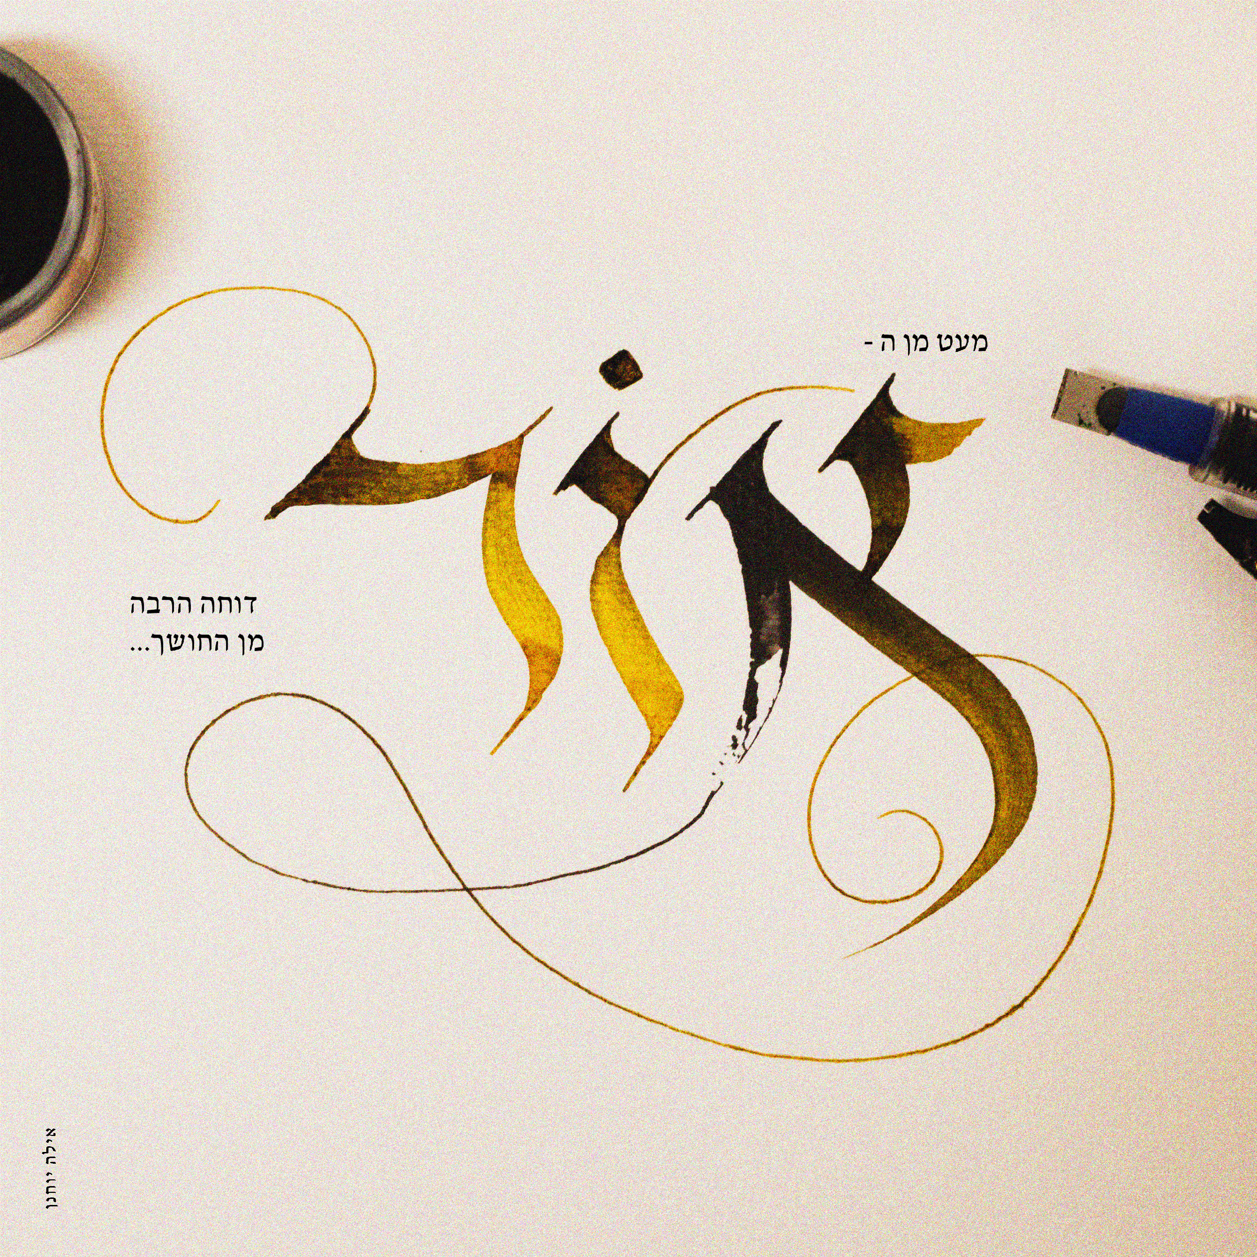 מעט מן ה -
אור
דוחה הרבה
מן החושך...
אילה יוחנן